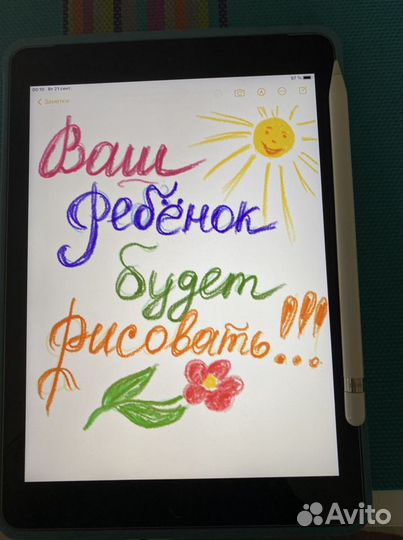 00:10 Вт 21 сент.
97 %
Заметки
Ваш
ребёнок
будет
рисовать!!!
Avito